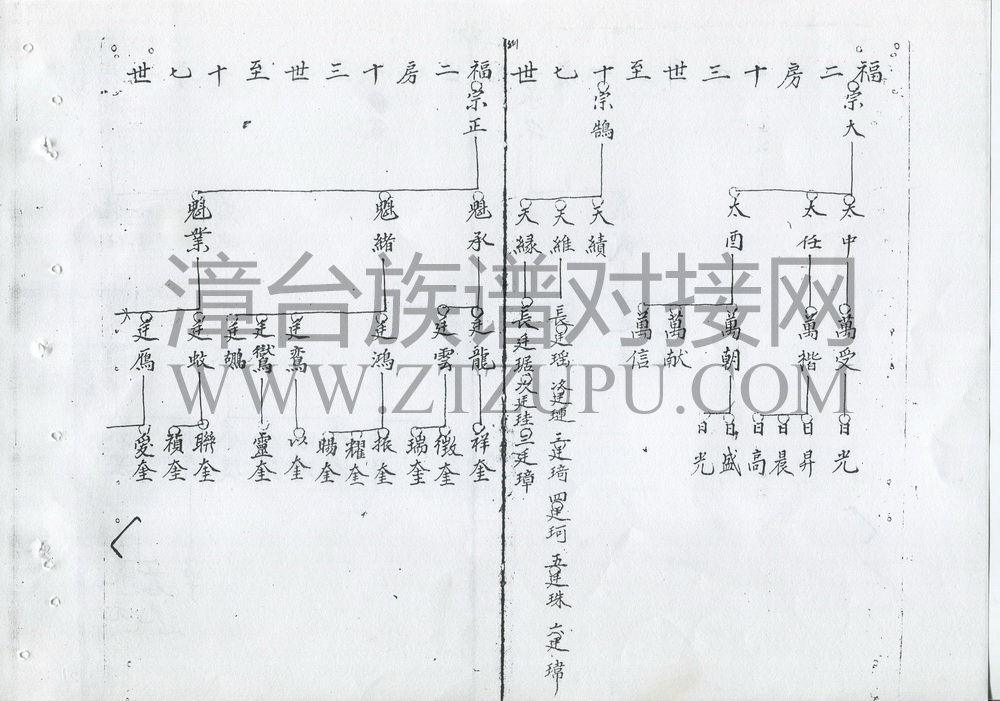 福二房十三世至十七世
宗大
宗鵠
太中
太任
太酉
天績
天維
天緣
萬受
萬楷
萬朝
萬献
萬信
長廷瑶 次廷璉 三廷琦 四廷珂 五廷珠 六廷瑋
長廷琚 次廷珪 三廷璋
日光
日昇
日晨
日高
日盛
日光
福二房十三世至十七世
宗正
魁承
魁緒
魁業
廷龍
廷雲
廷鴻
廷鸞
廷鷽
廷鵷
廷蛟
廷鴈
祥奎
徵奎
瑞奎
振奎
耀奎
賜奎
以奎
靈奎
聯奎
積奎
愛奎
漳台族谱对接网
WWW.ZTZUPU.COM